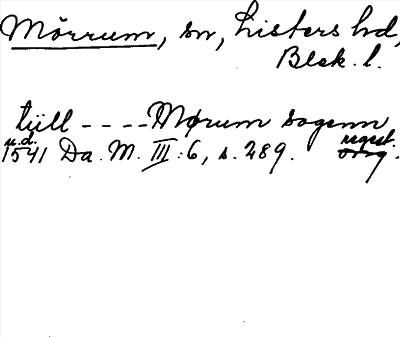 Mörrum, sn, Listers hd,
Blek. l.
tiill - - - - Mørum sogenn
u.d.
1541 Da. M. III : 6, s. 289. regest.
orig.